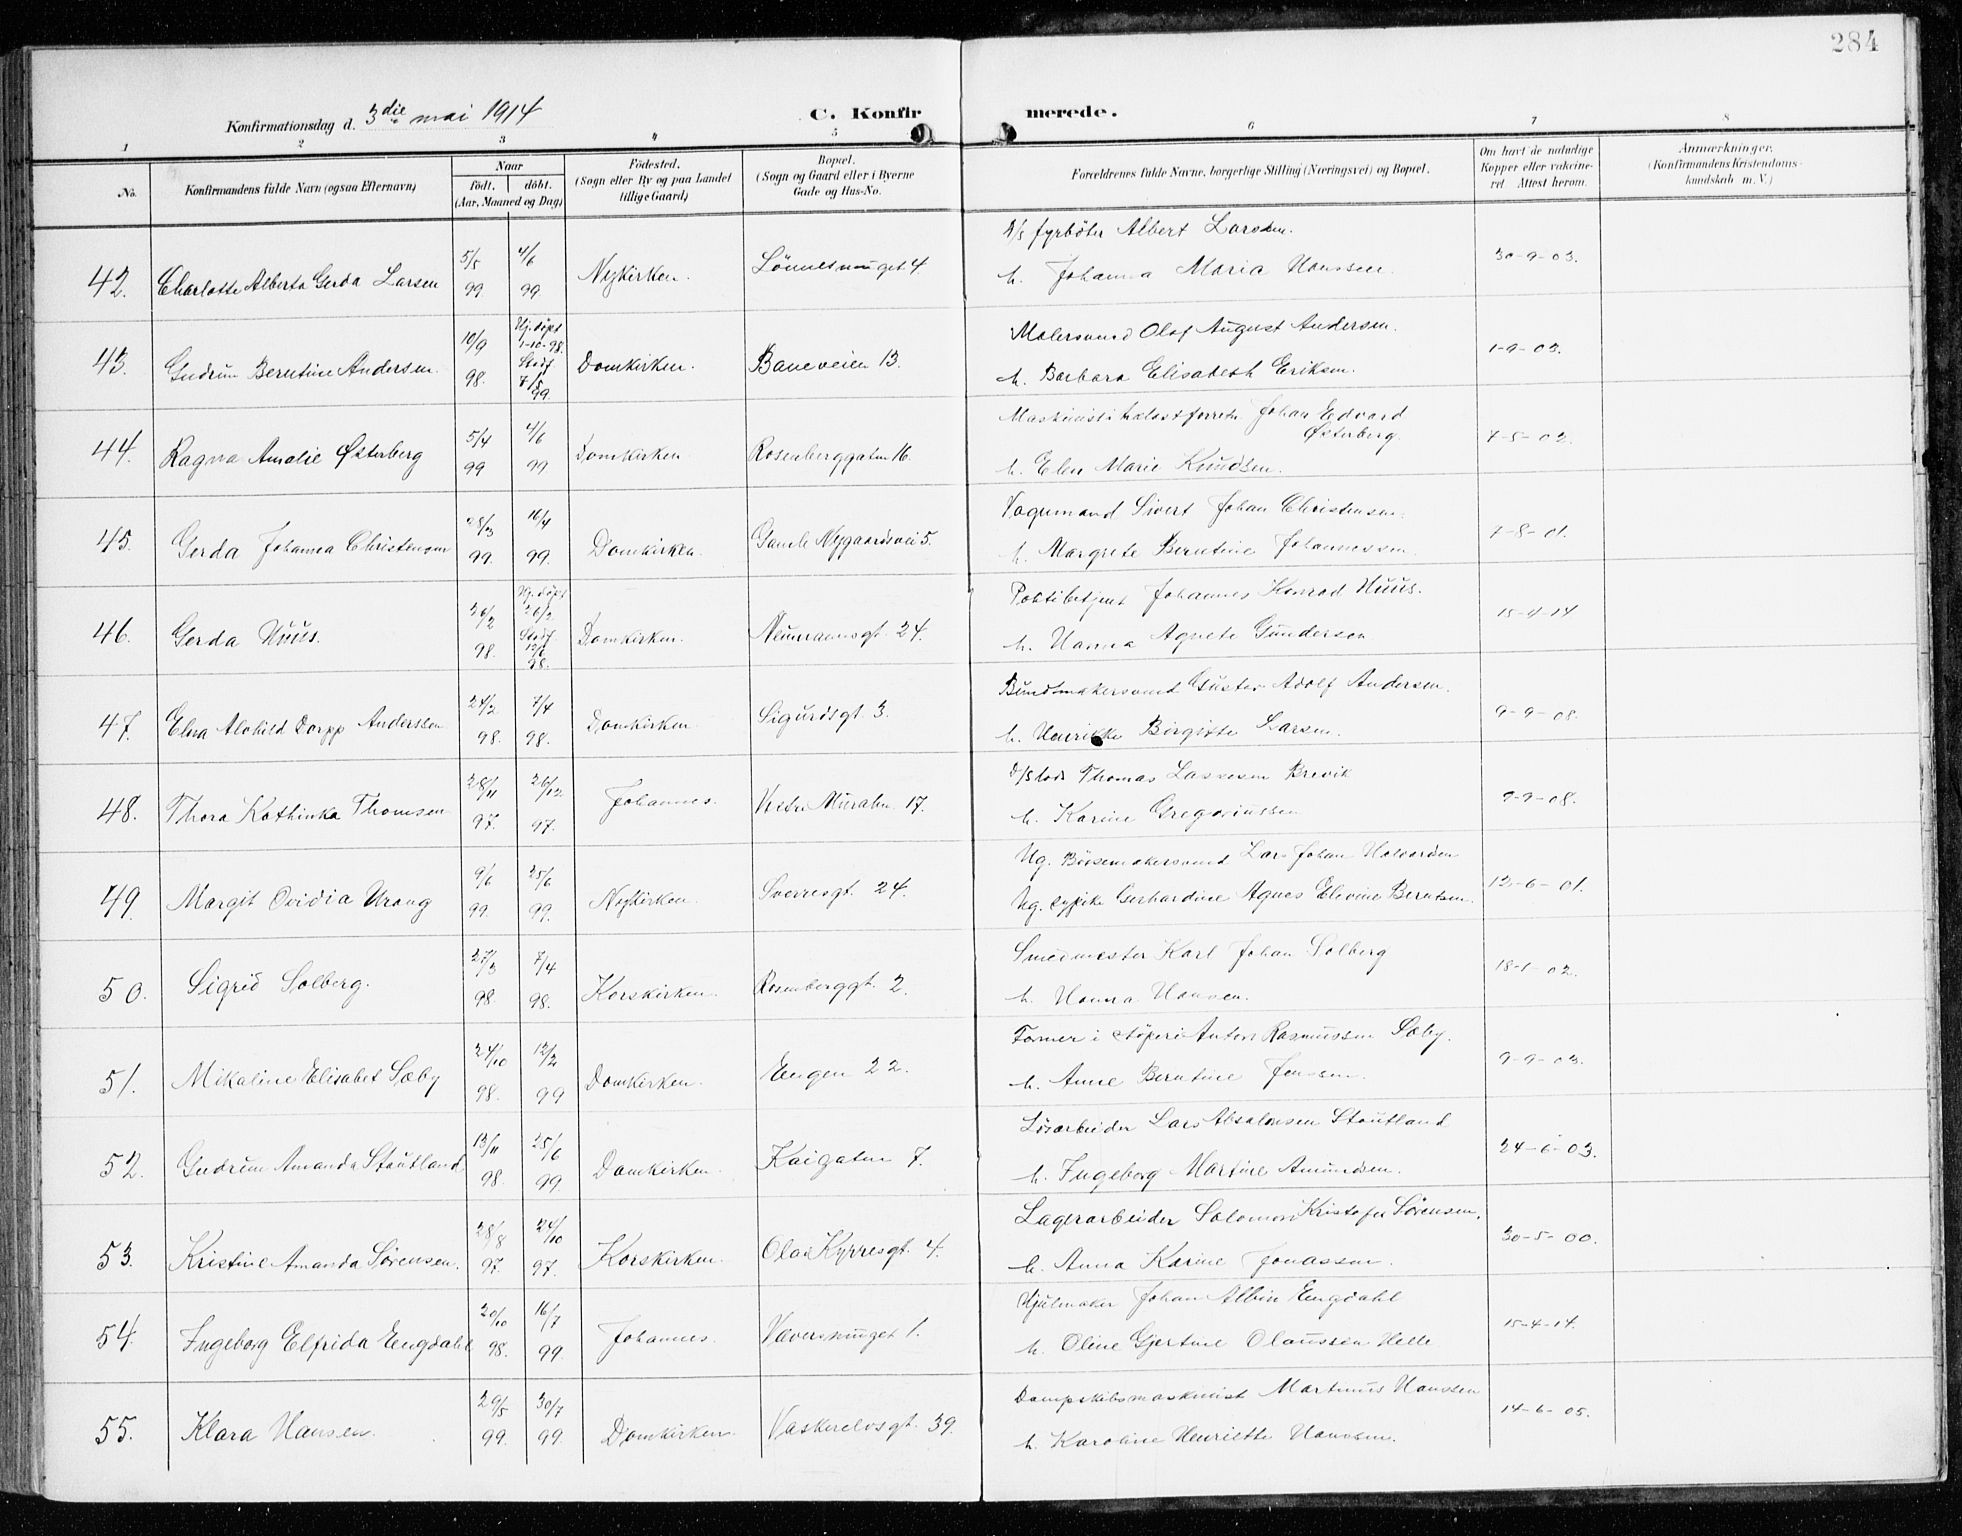 284
Konfirmationsdag d. 3die mai 1914
C. Konfirmerede.
1 2 3 4 5 6 7 8
No. Konfirmandens fulde Navn (ogsaa Efternavn) Naar født. døbt. (Aar, Maaned og Dag) Fødested. (Sogn eller By og paa Landet tillige Gaard) Bopæl. (Sogn og Gaard eller i Byerne Gade og Hus-No. Forældrenes fulde Navne, borgerlige Stilling (Næringsvei) og Bopæl. Om havt de naturlige Kopper eller vakcineret. Attest herom. Anmærkninger. (Konfirmandens Kristendomskundskab m. V.)
42. Charlotte Alberta Gerda Larsen 5/5 99. 4/6 99. Nykirken. 4 fyrbøter Albert Larsen. h. Johanna Maria Hanssen. 30-9-03.
43. Gudrun Berntine Andersen. 10/9 98. Hj. døpt 1-10-98. Stadf 7/5 99. Domkirken. Baneveien 13. Malersvend Olaf August Andersen. h. Barbara Elisabeth Eriksen. 1-9-03.
44. Ragna Amalie Østerberg 5/4 99 4/6 99. Domkirken Rosenberggaten 16. Johan Edvard Østerberg. h. Elen Marie Knudsen. 7-5-02.
45. Gerda Johanna Christensen 28/3 99. 16/4 99. Domkirken. Gamle Nygaardsvei 5. Vognmand Sivert Johan Christensen. h. Margrete Berntine Johannessen. 7-8-01.
46. Gerda Huus. 26/2 98. Hj. døpt 26/2 Stadf 12/6 98. Domkirken. Neumannsgt. 24. Politibetjent Johannes Konrad Huus. h. Hanna Agnete Gundersen 15-4-14
47. Elna Alvhild Dorpp Anderssen 24/2 98. 7/4 98. Domkirken Sigurdsgt 3. Buntmakersvend Gustav Adolf Andersen. h. Henrikke Birgitte Larsen. 9-9-08.
48. Thora Kathinka Thomsen 28/11 97. 26/12 97. Johannes. Vestre Muralm. 17. Thomas Lassesen Brevik h. Karine Gregoriussen 9-9-08.
49. Margit Ovidia Urang 9/6 99. 25/6 99. Nykirken. Sverresgt. 24. Ug. Bøssemakersvend Lars Johan Halvorsen Ug. sypike Gerhardine Agnes Elevine Berntsen. 13-6-01.
50. Sigrid Solberg. 27/3 98. 7/4 98. Korskirken. Rosenberggt. 2. Smedmester Karl Johan Solberg h. Hanna Hansen. 18-1-02.
51. Mikaline Elisabet Sæby 24/10 98. 12/2 99 Domkirken. Engen 22. Former i støperi Anton Rasmussen Sæby. h. Anne Berntine Jensen. 9-9-03.
52. Gudrun Amanda Stautland 13/11 98. 25/6 99. Domkirken. Kaigaten 7. Løsarbeider Lars Absalonsen Stautland h. Ingeborg Martine Amundsen. 24-6-03.
53. Kristine Amanda Sørensen. 28/8 97. 24/10 97. Korskirken. Olav Kyrresgt. 4. Lagerarbeider Salomon Kristofer Sørensen. h. Anna Karine Jonassen. 30-5-00.
54. Ingeborg Elfrida Engdahl 20/10 98. 16/7 99. Johannes. Væversmuget 1. Hjulmaker Johan Albin Engdahl h. Oline Gjertine Olaussen Helle 15-4-14.
55. Klara Hansen. 29/5 99. 30/7 99. Domkirken. Vaskerelvsgt. 39. Dampskibsmaskinist Martinus Hanssen h. Karoline Henriette Hanssen. 14-6-05.